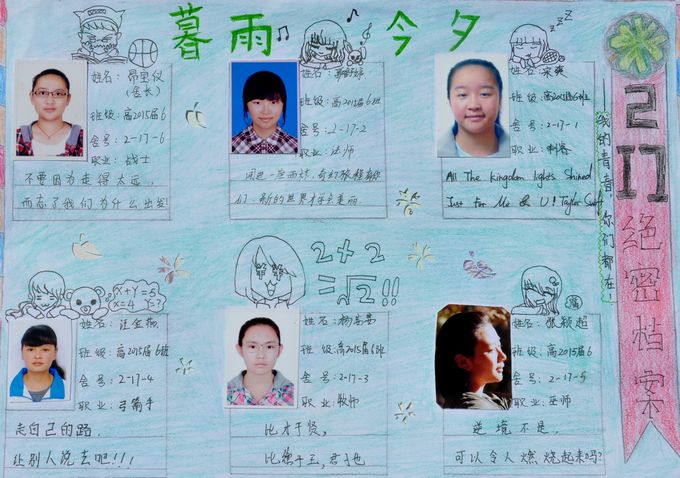 暮雨 今夕
姓名：
(舍长)
班级：高2015届6
舍号：2-17-6
职业：战士
不要因为走得太远，
而忘了我们为什么出发！
姓名：
班级：高2015届6班
舍号：2-17-2
职业：法师
姓名：宋爽
班级：高2015届6班
舍号：2-17-1
职业：刺客
All The kingdom lights Shined
Just for Me & U! Taylor Swift
ZZZ
我的青春 你们都在！
217绝密档案
x+y=6
x=4 y=?
姓名：汪金燕
班级：高2015届6班
舍号：2-17-4
职业：弓箭手
走自己的路，
让别人说去吧!!!
2+2
=√2!!
姓名：杨
班级：高2015届6班
舍号：2-17-3
职业：教师
比才于贤，
比德于玉，君子也
姓名：张颖超
班级：高2015届6
舍号：2-17-5
职业：巫师
逆境不是，
可以令人燃烧起来吗？